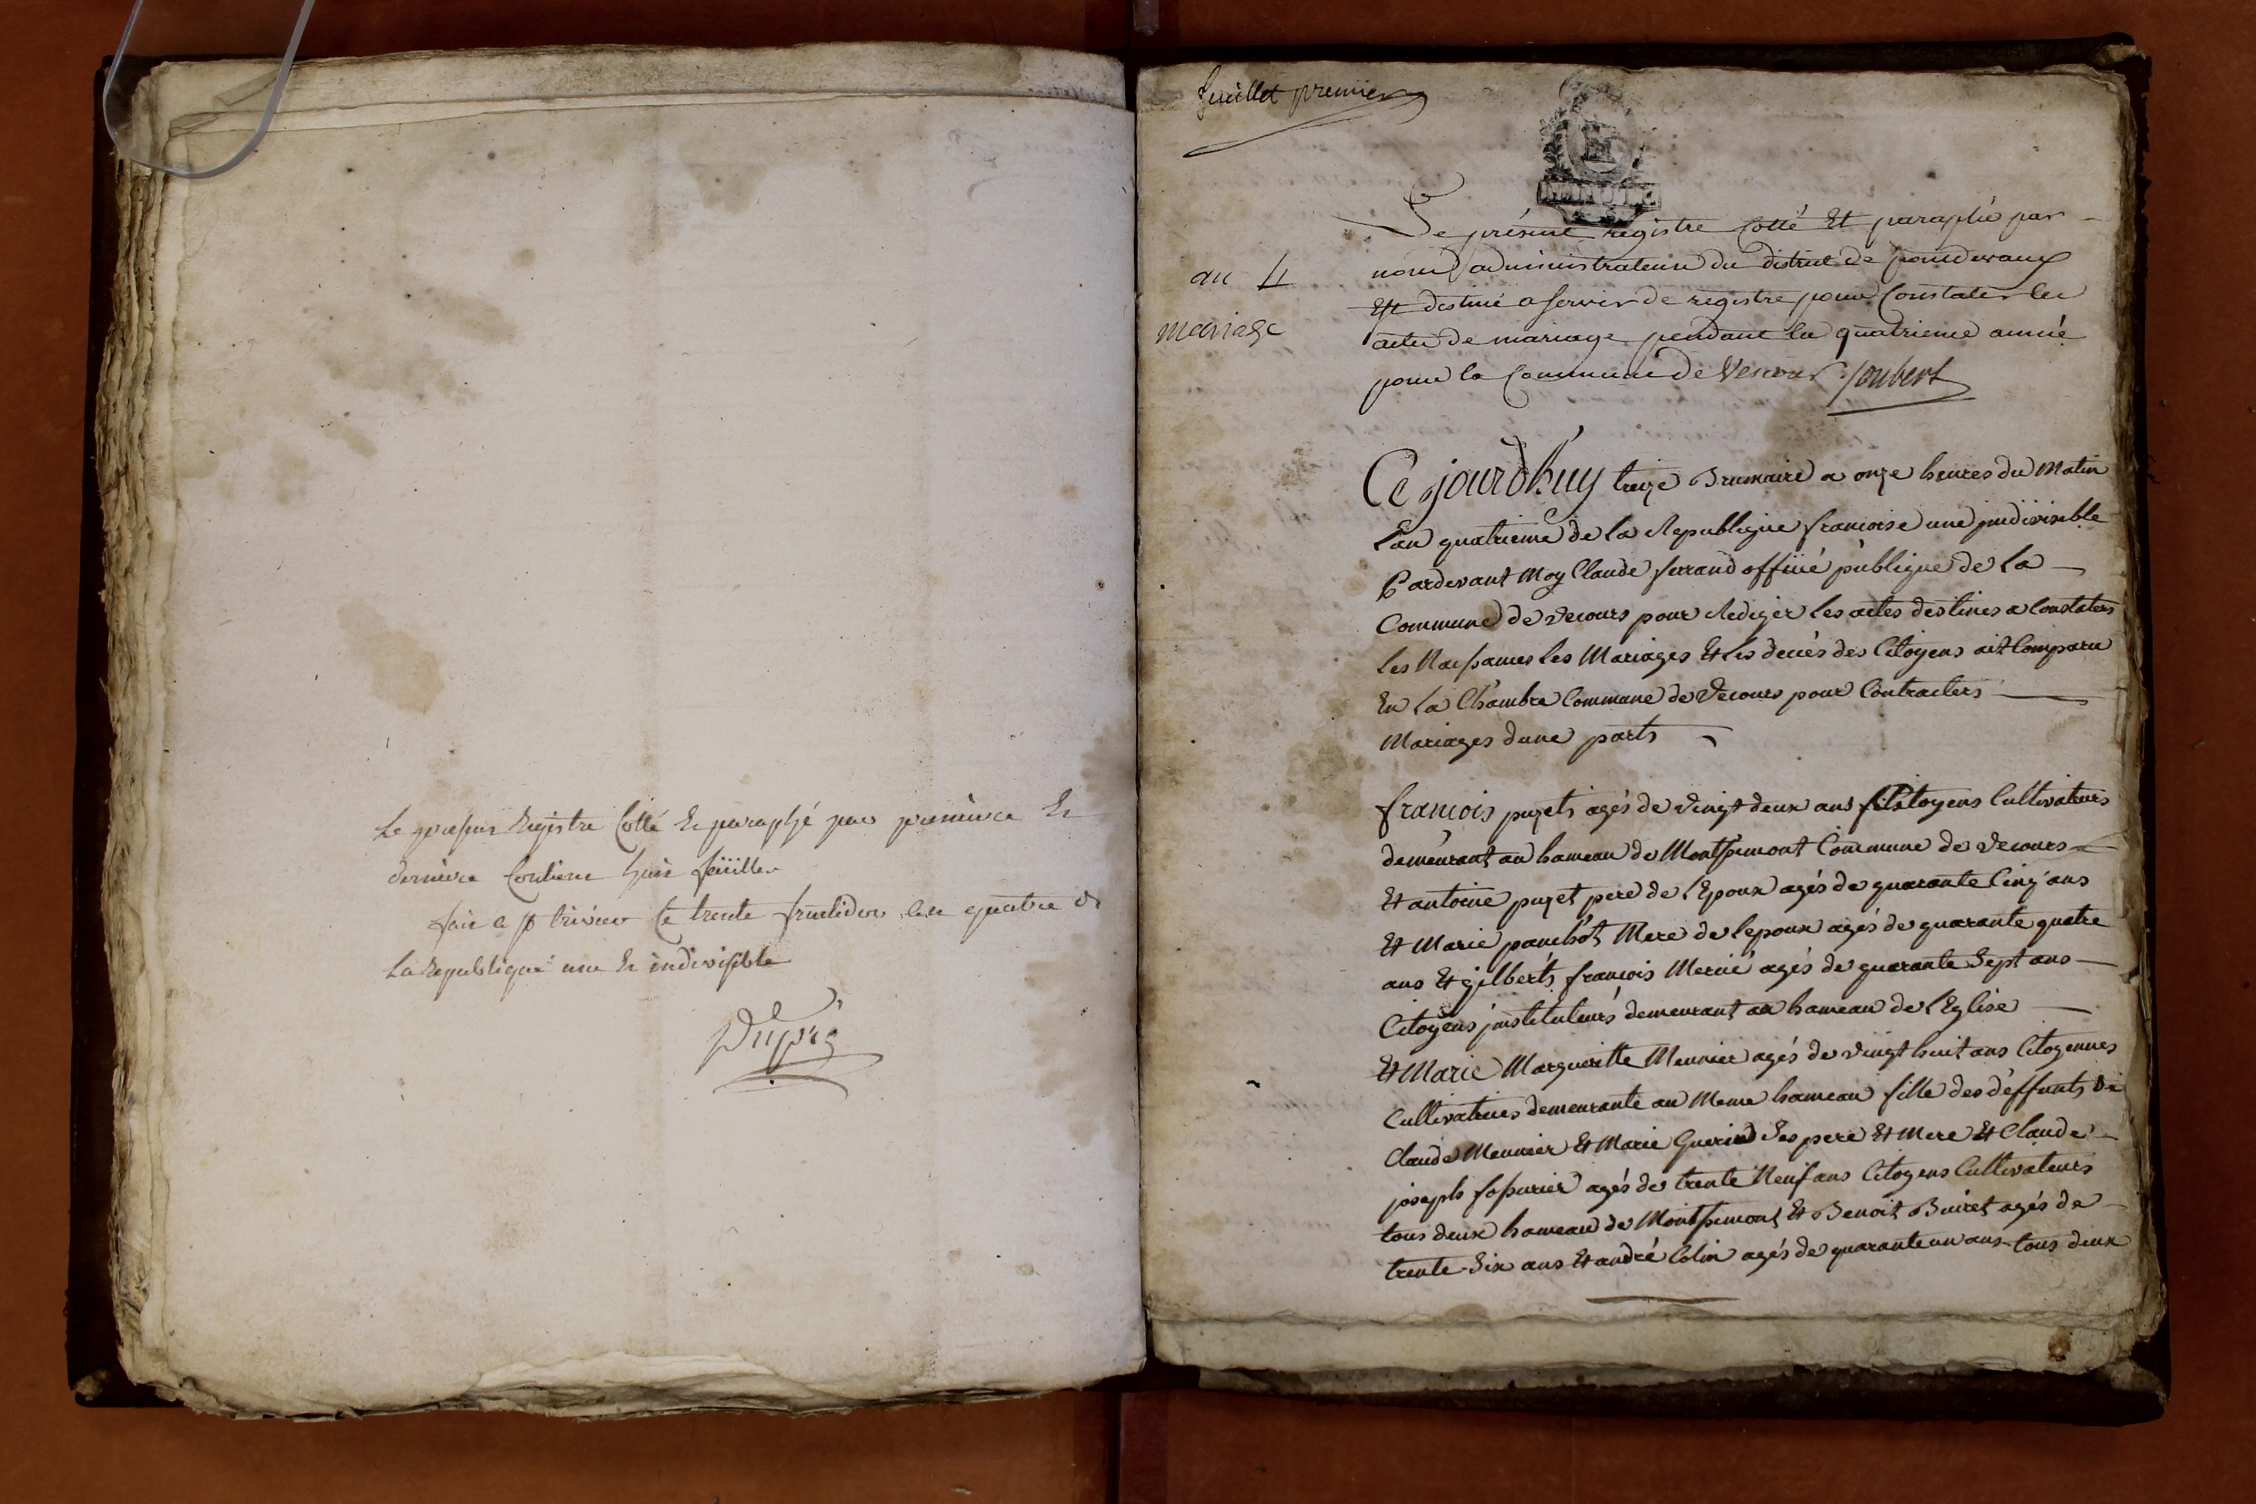 Le presen Registre Cotté Et paraphé par premiere Et
derniere Contient huit feüilles
fait a st trivier Ce trente fructidor lan quatre de
La Republique une Et indivisible
Dupré
feuillet premier
an 4
mariage
Le présent registre Cotté Et paraphé par
nous administrateur du district de pontdevaux
Est destiné a servir de registre pour Constater les
actes de mariage pendant la quatrieme année
pour la Commune de Vescours Joubert
Ce jourdhuy treize Brumaire a onze heures du Matin
Lan quatrieme de la Republique francoise une jndivisible
Pardevant Moy Claude ferrand officié publique de La
Commune de Vecours pour Rediger les actes destines a Constaters
les Naissances les Mariages Et les decés des Citoyens ait Comparu
En La Chambre Commune de Vecours pour Contracters
Mariages dune parts
francois puget agés de vingt deux ans Citoyens Cultivateurs
demeurant au hameau de Montsimont Commune de Vecours
Et antoine puget pere de lEpoux agés de quarante Cinq ans
Et Marie panchot Mere de lepoux agés de quarante quatre
ans Et gilberts francois Mercié agés de quarante Sept ans
Citoyens jnstituteurs demeurant au hameau de lEglise
Et Marie Marguerite Meunier agés de vingt huit ans Citoyennes
Cultivateurs demeurante au Meme hameau fille des deffunts de
Claude Meunier Et Marie Guerin Ses pere Et Mere Et Claude
joseph agés de trente Neuf ans Citoyens Cultivateurs
tous deux hameau de Montsimont Et Benoit Buiret agés de
trente Six ans Et andré Colin agés de quarante un ans tous deux